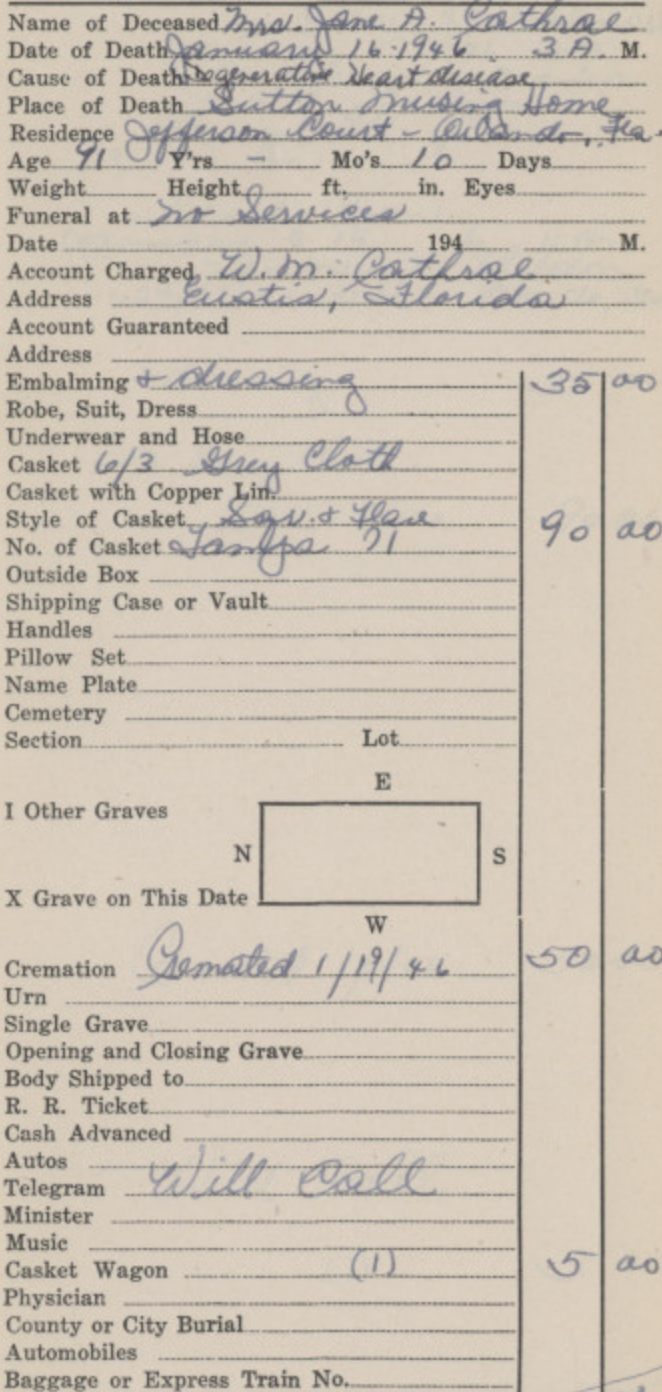 Name of Deceased Mrs. Jane A. Cathrae
Date of Death January 16 1946 3 A. M.
Cause of Death Degenerative Heart disease
Place of Death Sutton Nursing Home
Residence Jefferson Court - Orlando, Fla.
Age 91 Y'rs - Mo's 10 Days
Weight Height ft. in. Eyes
Funeral at No Services
Date 194 M.
Account Charged W. M. Cathrae
Address Eustis, Florida
Account Guaranteed
Address
Embalming + dressing 35 00
Robe, Suit, Dress
Underwear and Hose
Casket 6/3 Grey Cloth
Casket with Copper Lin.
Style of Casket Sqr. + Flare 90 00
No. of Casket Tampa 71
Outside Box
Shipping Case or Vault
Handles
Pillow Set
Name Plate
Cemetery
Section Lot
E
I Other Graves
N S
X Grave on This Date
W
Cremation Cremated 1/19/46 50 00
Urn
Single Grave
Opening and Closing Grave
Body Shipped to
R. R. Ticket
Cash Advanced
Autos
Telegram Will Call
Minister
Music
Casket Wagon (1) 5 00
Physician
County or City Burial
Automobiles
Baggage or Express Train No.